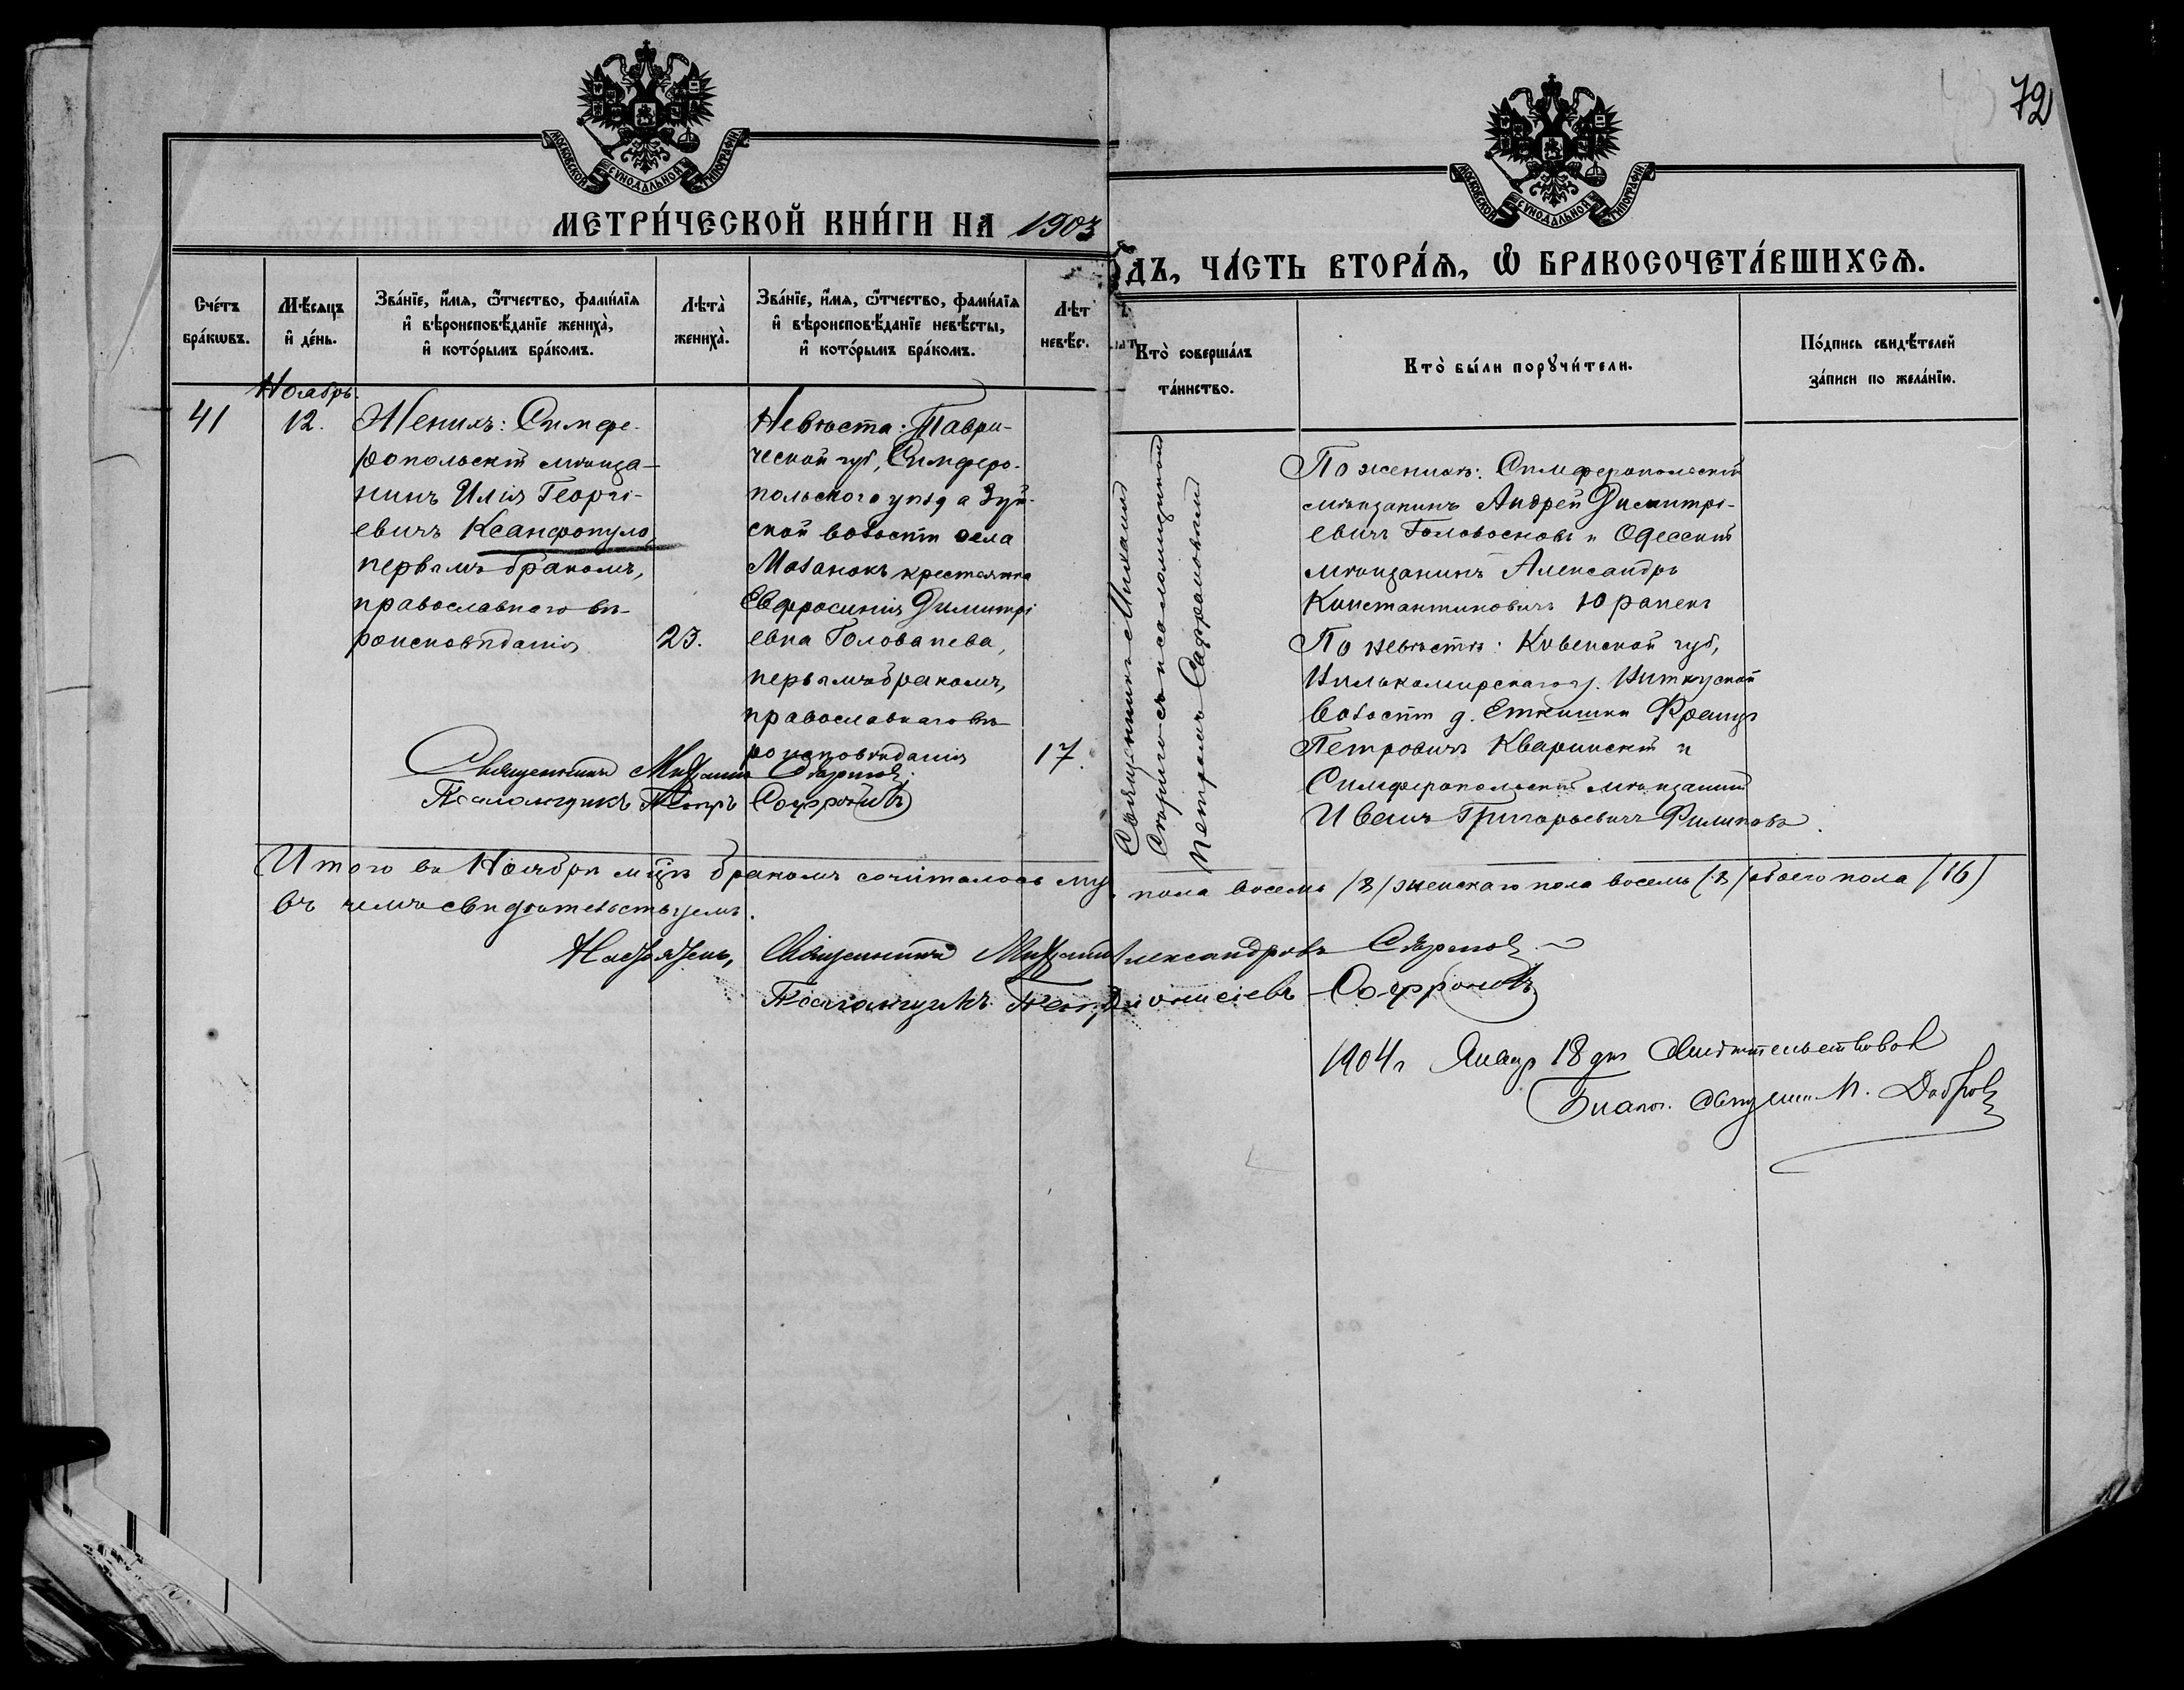 72
МОСКОВСКОЙ СѴНОДАЛЬНОЙ ТИПОГРАФІИ
МОСКОВСКОЙ СѴНОДАЛЬНОЙ ТИПОГРАФІИ
МЕТРИ́ЧЕСКОЙ КНИ́ГИ НА 1903
ДЪ, ЧА́СТЬ ВТОРА́Ѧ, Ѿ БРАКОСОЧЕТА́ВШИХСѦ.
Сче́тъ
бра́кѡвъ.
Мѣ́сѧцъ
и҆ де́нь.
Зва́нїе, и҆́мѧ, ѻ҆́тчество, фами́лїѧ
и҆ вѣроисповѣ́данїе женихà,
и҆ кото́рымъ бра́комъ.
Лѣтà
женихà.
Зва́нїе, и҆́мѧ, ѻ҆́тчество, фами́лїѧ
и҆ вѣроисповѣ́данїе невѣ́сты,
и҆ кото́рымъ бра́комъ.
Лѣт
невѣ́с
Кто̀ соверша́лъ
та́инство.
Кто̀ бы́ли порꙋчи́тели.
По́дпись свидѣ́телей
за́писи по жела́нїю.
Ноябрь.
41
12.
Женихъ: Симфе-
ропольскій мѣща-
нинъ Илія Георгі-
евичъ Ксанфопуло,
первымъ бракомъ,
православнаго вѣ-
роисповѣданія
23.
Невѣста: Таври-
ческой губ, Симферо-
польскаго уѣзда Зуй-
ской волости села
Мазанокъ крестьянка
Евфросинія Димитрі
евна Голованева,
первымъ бракомъ,
православнаго вѣ-
роисповѣданія
17.
Священникъ Михаилъ
Псаломщикъ Петръ Софроновъ
Священникъ Михаилъ
съ псаломщикомъ
Петромъ Сафроновымъ
По женихѣ: Симферопольскій
мѣщанинъ Андрей Димитрі-
евичъ Головосновъ и Одесскій
мѣщанинъ Александръ
Константиновичъ
По невѣстѣ: Ковенской губ,
Вилькомирскаго у.
волости д. Францъ
Петровичъ Кваринскій и
Симферопольскій мѣщанинъ
Иванъ Григорьевичъ Филиповъ.
Итого въ Ноябрѣ мцѣ бракомъ сочиталось муж. пола восемь /8/ женскаго пола восемь /8/ обоего пола /16/
въ чемъ свидѣтельствуемъ.
Настоятель, Священникъ Михаилъ Александровъ
Псаломщикъ Петръ Діонисіевъ Софроновъ
1904 г Январ 18 дня Свидѣтельствовалъ
Благоч. Священ. Н. Добровъ